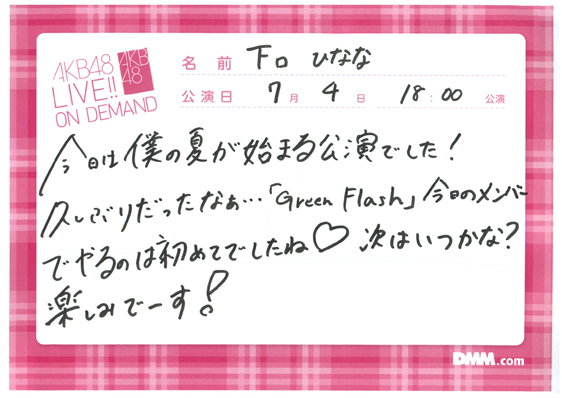 AKB48
LIVE!!
ON DEMAND
AKB
48
名前 下口 ひなな
公演日 7月 4日 18:00 公演
今日は僕の夏が始まる公演でした!
久しぶりだったなぁ…「Green Flash」今日のメンバー
でやるのは初めてでしたね♡ 次はいつかな?
楽しみでーす!
DMM.com